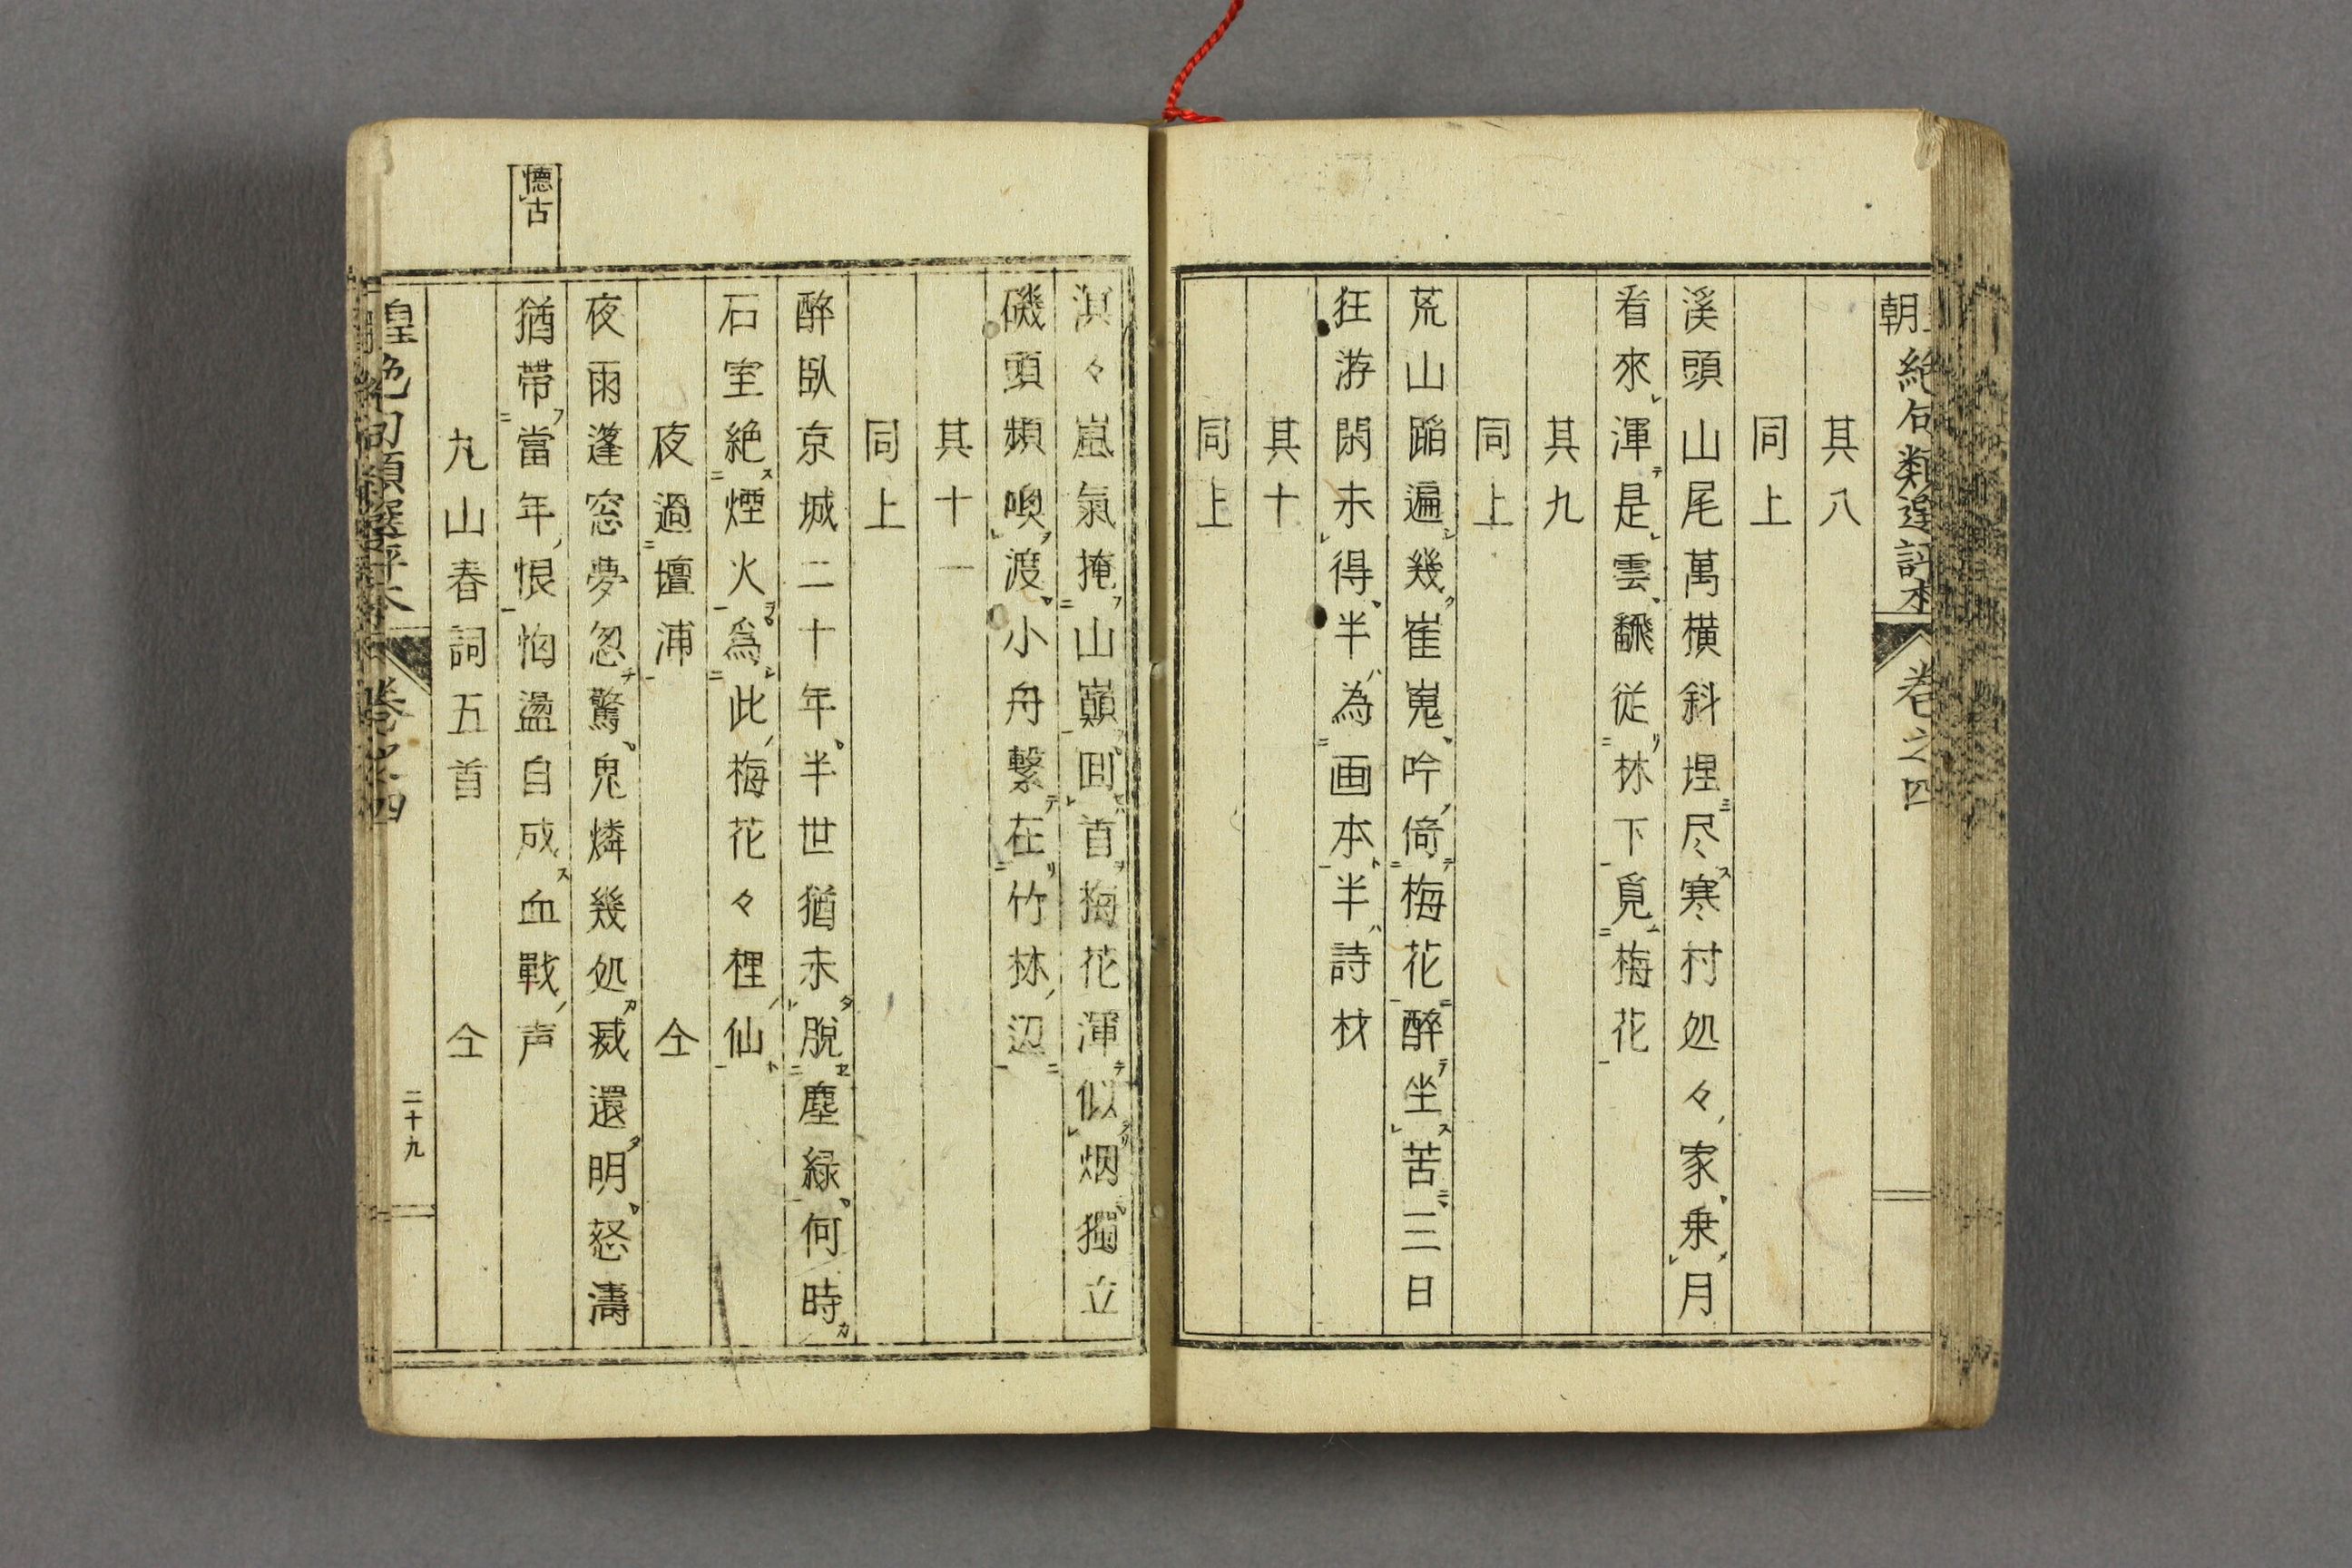 朝絶句類選評本 卷之四
其八
同上
溪頭山尾萬橫斜埋尽寒村処々家乗月
看來渾是雲飜從林下覓梅花
其九
同上
荒山踏遍幾崔嵬吟倚梅花醉坐苦三日
狂游閑未得半為画本半詩材
其十
同上
溟々嵐氣掩山巓回首梅花渾似烟獨立
磯頭頻喚渡小舟繋在竹林辺
其十一
同上
醉臥京城二十年半世猶未脫塵緑何時
石室絶煙火為此梅花々裡仙
夜過壇浦 仝
夜雨蓬窓夢忽驚鬼燐幾処滅還明怒濤
懷古
猶帶當年恨洶盪自成血戰声
九山春詞五首 仝
皇絶句類選評本 卷之四 二十九